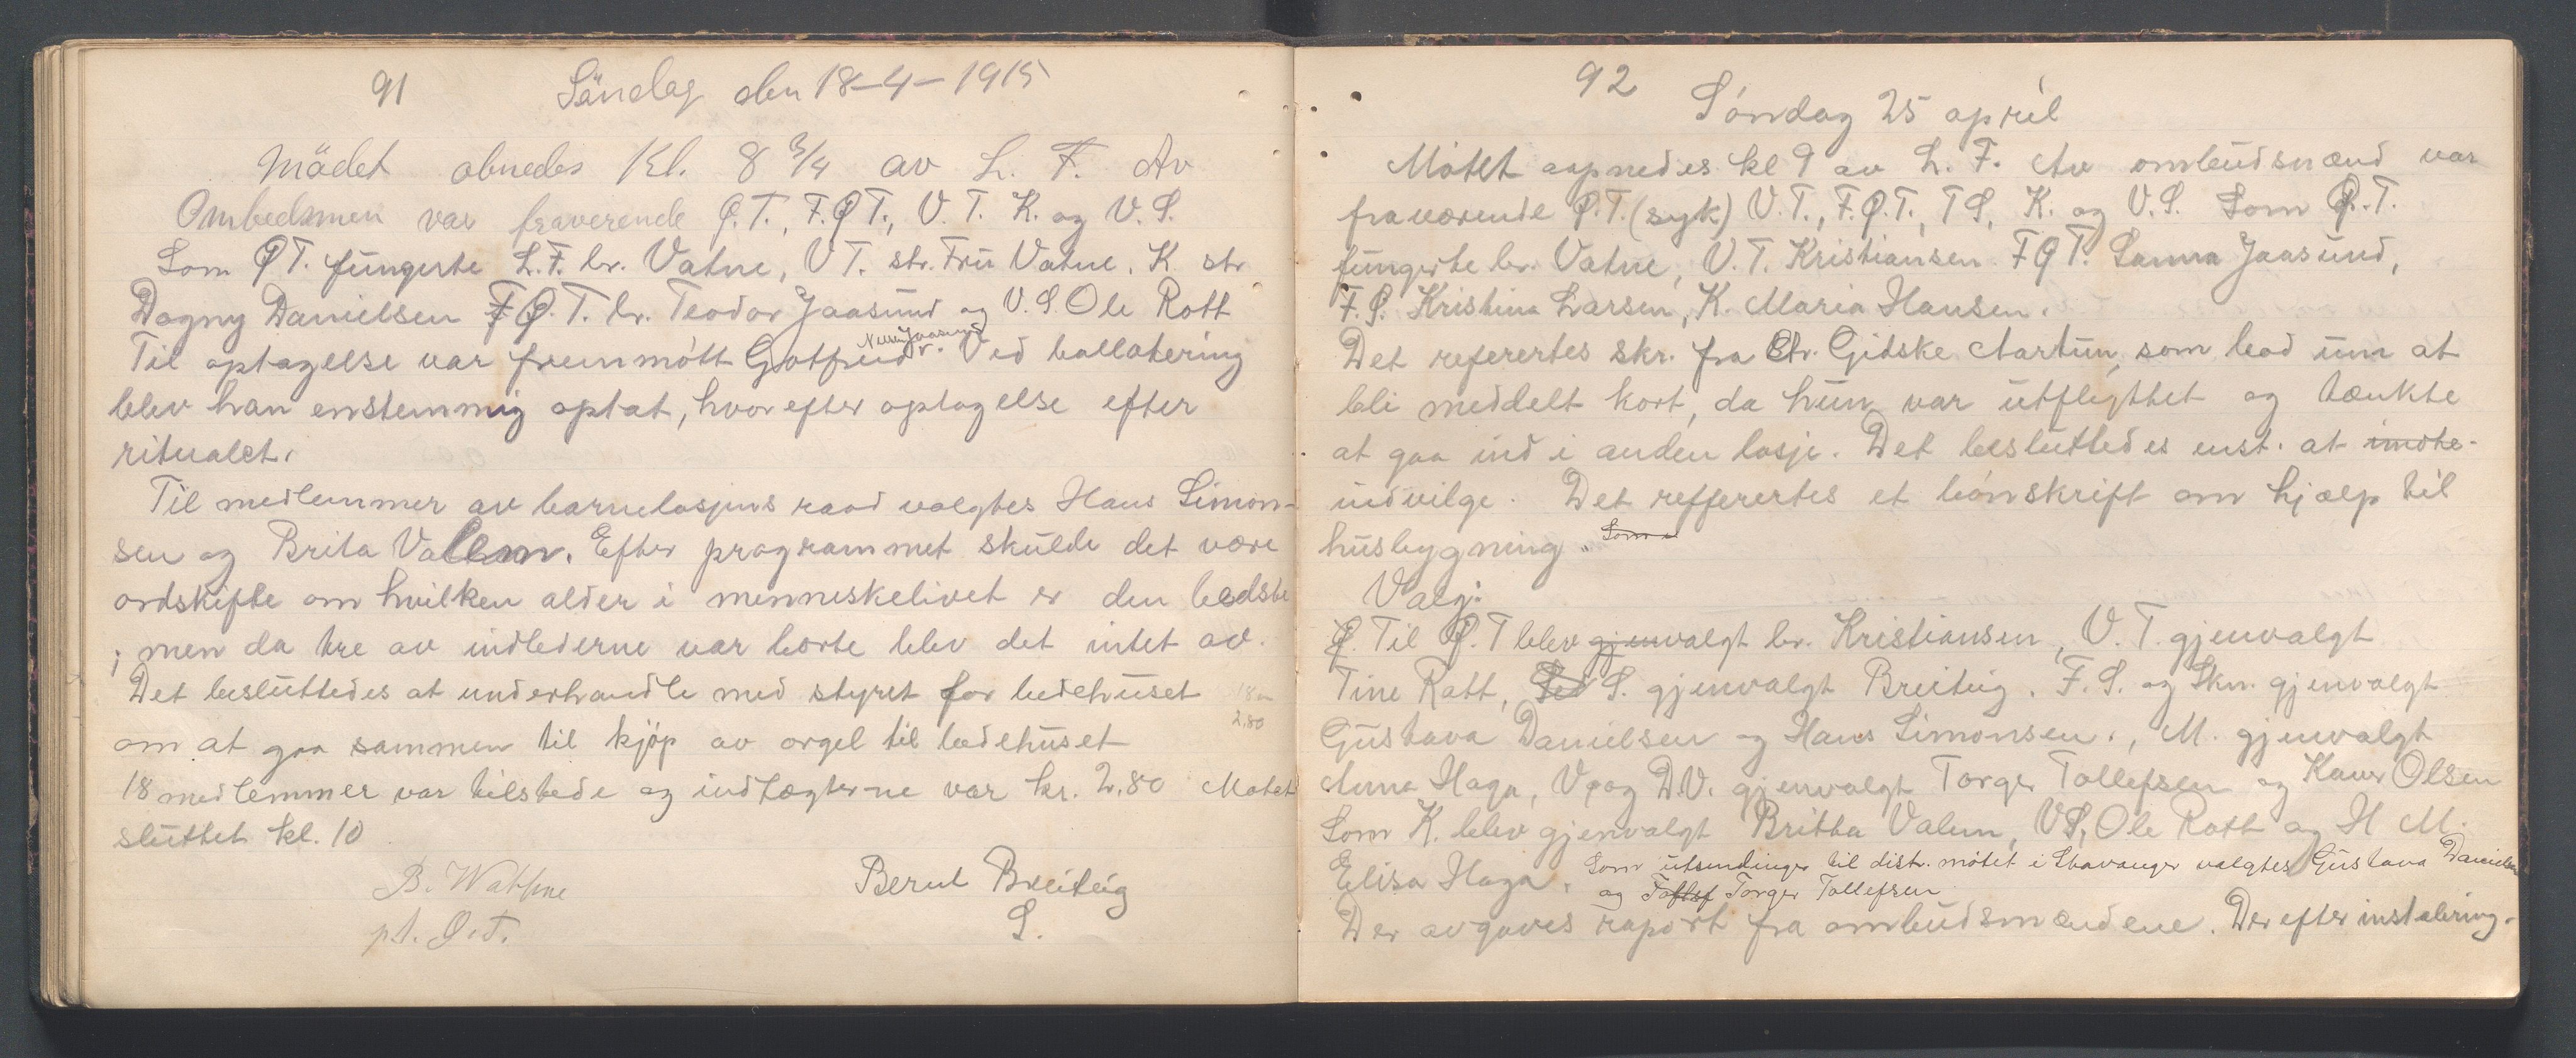 91
Söndag den 18-4-1915
Mödet abnedes Kl. 8 3/4 av L. F. Av
Ombedsmen var fraverende Ø.T., F.Ø.T., V.T. K. og V.S.
Som ØT. fungerte L.F. br. Vatne, V T. str. Fru Vatne. K. str
Dagny Danielsen F.Ø.T. br. Teodor Jaasund og V.S. Ole Rott
Til optagelse var fremmött Gotfred Jaasund. Ved ballotering
blev han enstemmig optat, hvorefter optagelse efter
ritualet.
Til medlemmer av barnelosjens raad valgtes Hans Simon-
sen og Brita Valem. Efter programmet skulde det være
ordskifte om hvilken alder i menneskelivet er den bedste
; men da tre av indlederne var borte blev det intet av.
Det besluttedes at underhandle med styret for bedehuset
18 m
2.80
om at gaa sammen til kjøp av orgel til bedehuset
18 medlemmer var tilstede og indtægterne var kr. 2.80 Møtet
sluttet kl. 10
B. Wathne
pt. Ø.T.
Bernt Breiteig
S.
92
Søndag 25 april
Møtet aapnedes kl 9 av L. F. Av ombudsmænd var
fraværende Ø.T. (syk) V.T., F.Ø.T., F S, K. og V.S. Som Ø.T.
fungerte br. Vatne, V.T. Kristiansen F Ø T. Sanna Jaasund,
F.S. Kristina Larsen, K. Maria Hansen.
Det referertes skr. fra Str. Gidske Aartun, som bad um at
bli meddelt kort, da hun var utflygttet og tænkte
at gaa ind i anden losje. Det besluttedes enst. at imøte-
indvilge. Det refferertes et bønskrift om hjælp til
husbygning. Som
Valg:
Ø. Til Ø.T blev gjenvalgt br. Kristiansen, V.T. gjenvalgt
Tine Ratt, S. gjenvalgt Breiteig. F.S. og Skn. gjenvalgt
Gustava Danielsen og Hans Simonsen., M. gjenvalgt
Anna Haga, V. og D.V. gjenvalgt Torger Tollefsen og Olsen
Som K. blev gjenvalgt Britha Valem, VS, Ole Rott og H M.
Elisa Haga. Som utsendinger til distr. møtet i Stavanger valgtes Gustava Danielsen
og Torger Tollefsen
Der avgaves raport fra ombudsmændene. Derefter instalering.